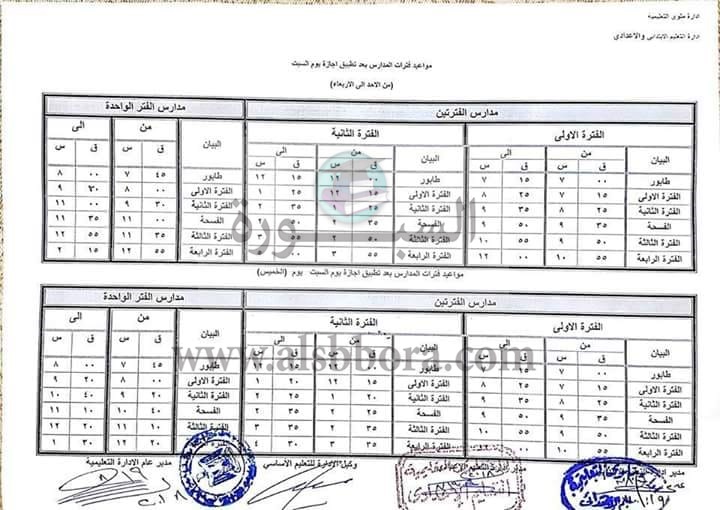 ادارة ملوى التعليمية
ادارة التعليم الابتدائى والاعدادى
مواعيد فترات المدارس بعد تطبيق اجازة يوم السبت
(من الاحد الى الاربعاء)
مدارس الفترتين مدارس الفتر الواحدة
الفترة الاولى الفترة الثانية
البيان من الى البيان من الى البيان من الى
ق س ق س ق س ق س ق س ق س
طابور ٠٠ ٧ ١٥ ٧ طابور ٠٠ ١٢ ١٥ ١٢ طابور ٤٥ ٧ ٠٠ ٨
الفترة الاولى ١٥ ٧ ٢٥ ٨ الفترة الاولى ١٥ ١٢ ٢٥ ١ الفترة الاولى ٠٠ ٨ ٣٠ ٩
الفترة الثانية ٢٥ ٨ ٣٥ ٩ الفترة الثانية ٢٥ ١ ٣٥ ٢ الفترة الثانية ٣٠ ٩ ٠٠ ١١
الفسحة ٣٥ ٩ ٥٠ ٩ الفسحة ٣٥ ٢ ٥٠ ٢ الفسحة ٠٠ ١١ ٣٥ ١١
الفترة الثالثة ٥٠ ٩ ٥٥ ١٠ الفترة الثالثة ٥٠ ٢ ٥٥ ٣ الفترة الثالثة ٣٥ ١١ ٥٥ ١٢
الفترة الرابعة ٥٥ ١٠ ٠٠ ١٢ الفترة الرابعة ٥٥ ٣ الفترة الرابعة ٥٥ ١٢ ١٥ ٢
السبورة
مواعيد فترات المدارس بعد تطبيق اجازة يوم السبت يوم (الخميس)
مدارس الفترتين مدارس الفتر الواحدة
الفترة الاولى الفترة الثانية
البيان من الى البيان من الى البيان من الى
ق س ق س ق س ق س ق س ق س
طابور ٠٠ ٧ ١٥ ٧ طابور ١٢ ١٥ ١٢ طابور ٤٥ ٧ ٠٠ ٨
الفترة الاولى ١٥ ٧ ٢٥ ٨ الفترة الاولى ١٥ ١٢ ٢٠ ١ الفترة الاولى ٠٠ ٨ ٢٠ ٩
الفترة الثانية ٢٥ ٨ ٣٥ ٩ الفترة الثانية ٢٠ ١ ٢٥ ٢ الفترة الثانية ٢٠ ٩ ٤٠ ١٠
الفسحة ٣٥ ٩ ٥٠ ٩ الفسحة ٢٥ ٢ ٣٥ ٢ الفسحة ٤٠ ١٠ ١٠ ١١
الفترة الثالثة ٥٠ ٩ ٥٥ ١٠ الفترة الثالثة ٣٥ ٢ ٣٠ ٣ الفترة الثالثة ١٠ ١١ ٢٠ ١٢
الفترة الرابعة ٥٥ ١٠ ٠٠ ١٢ الفترة الرابعة ٣٠ ٣ ٣٠ ٤ الفترة الرابعة ٢٠ ١٢ ٣٠ ١
www.alsbbora.com
مدير ادارة التعليم وكيل الادارة للتعليم الأساسي مدير عام الادارة التعليمية